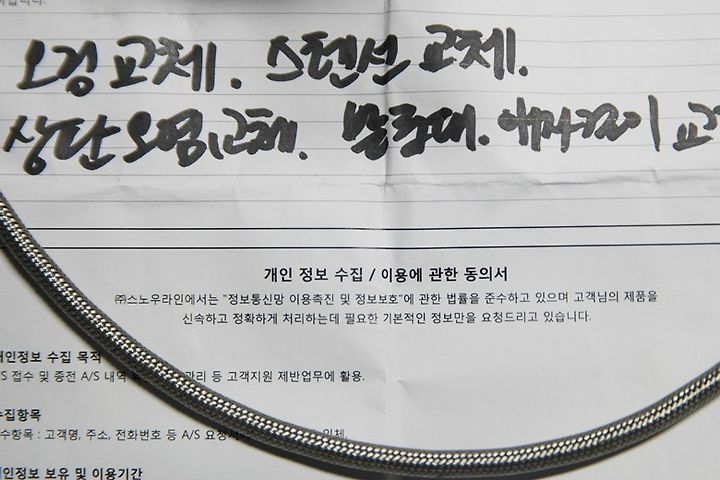 오링 교체. 스텐선 교체.
상단 오염 교체. 받침대.
개인 정보 수집 / 이용에 관한 동의서
㈜스노우라인에서는 "정보통신망 이용촉진 및 정보보호"에 관한 법률을 준수하고 있으며 고객님의 제품을
신속하고 정확하게 처리하는데 필요한 기본적인 정보만을 요청드리고 있습니다.
개인정보 수집 목적
A/S 접수 및 종전 A/S 내역 관리 등 고객지원 제반업무에 활용.
수집항목
필수항목 : 고객명, 주소, 전화번호 등 A/S 요청시 일체.
개인정보 보유 및 이용기간